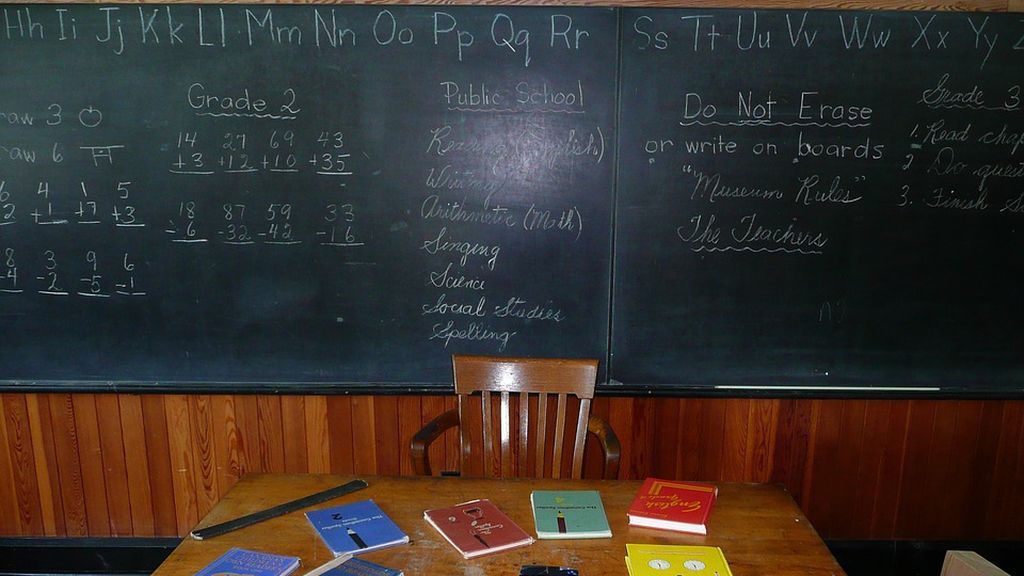 Hh Ii Jj Kk Ll Mm Nn Oo Pp Qq Rr Ss Tt Uu Vv Ww Xx Yy
raw 3
raw 6
4 1 5
+1 +7 +3
8 3 9 6
-4 -2 -5 -1
Grade 2
14 27 69 43
+3 +12 +10 +35
18 87 59 33
-6 -32 -42 -16
Public School
Reading (English)
Writing
Arithmetic (Math)
Singing
Science
Social Studies
Spelling
Do Not Erase
or write on boards
"Museum Rules"
The Teachers
Grade 3
1. Read chap
2 Do ques
3. Finish
2
English